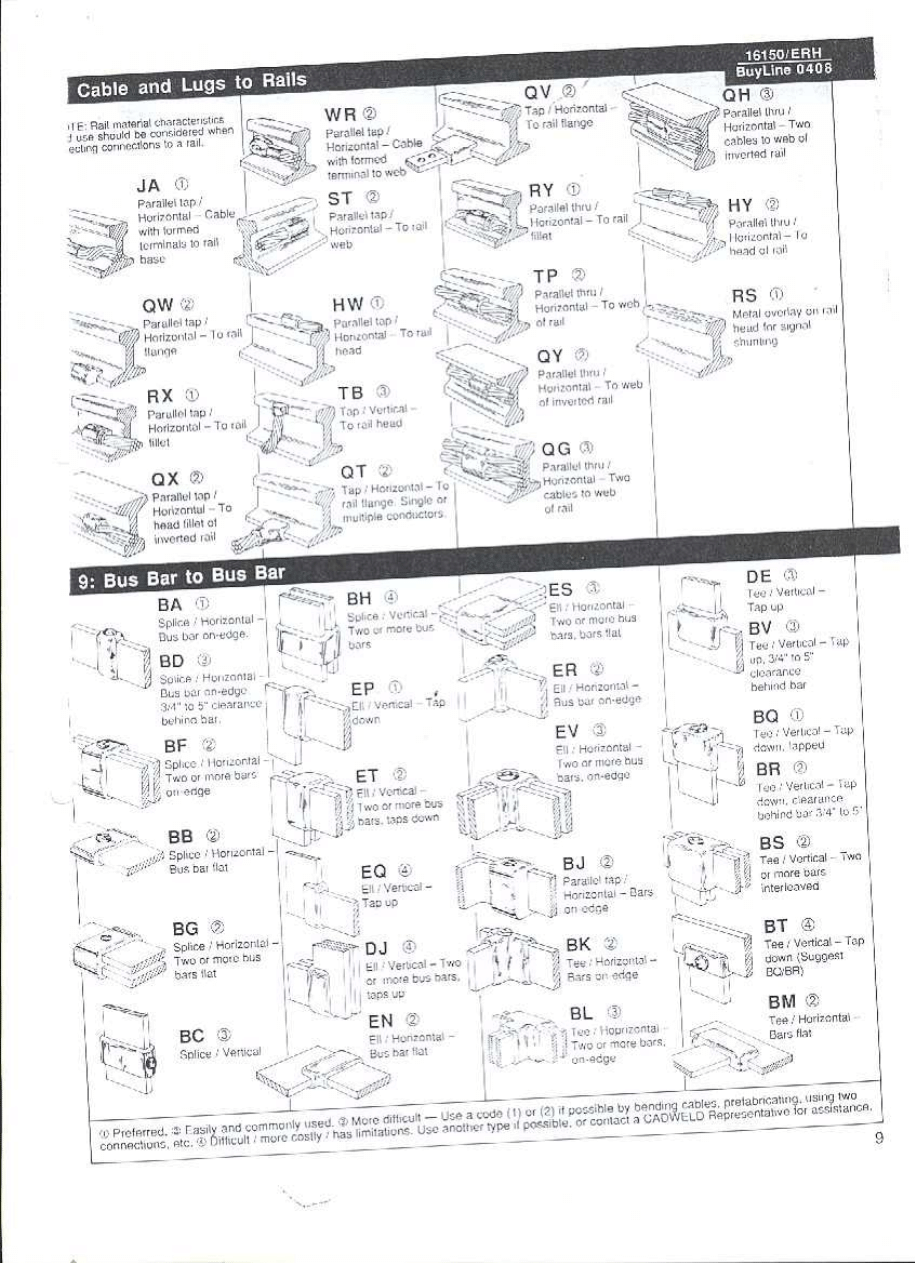 Cable and Lugs to Rails
16150/ERH
BuyLine 0408
TE: Rail material characteristics
use should be considered when
ecting connections to a rail.
JA ①
Parallel tap /
Horizontal – Cable
with formed
terminals to rail
base
QW ②
Parallel tap /
Horizontal – To rail
flange
RX ①
Parallel tap /
Horizontal – To rail
fillet
QX ②
Parallel tap /
Horizontal – To
head fillet of
inverted rail
WR ②
Parallel tap /
Horizontal – Cable
with formed
terminal to web
ST ②
Parallel tap /
Horizontal – To rail
web
HW ①
Parallel tap /
Horizontal – To rail
head
TB ③
Tap / Vertical –
To rail head
QT ②
Tap / Horizontal – To
rail flange. Single or
multiple conductors.
QV ②
Tap / Horizontal –
To rail flange
RY ①
Parallel thru /
Horizontal – To rail
fillet
TP ②
Parallel thru /
Horizontal – To web
of rail
QY ②
Parallel thru /
Horizontal – To web
of inverted rail
QG ③
Parallel thru /
Horizontal – Two
cables to web
of rail
QH ③
Parallel thru /
Horizontal – Two
cables to web of
inverted rail
HY ②
Parallel thru /
Horizontal – To
head of rail
RS ①
Metal overlay on rail
head for signal
shunting
9: Bus Bar to Bus Bar
BA ①
Splice / Horizontal –
Bus bar on-edge.
BD ③
Splice / Horizontal –
Bus bar on-edge
3/4" to 5" clearance
behind bar.
BF ②
Splice / Horizontal –
Two or more bars
on-edge
BB ②
Splice / Horizontal –
Bus bar flat
BG ②
Splice / Horizontal –
Two or more bus
bars flat
BC ③
Splice / Vertical
BH ④
Splice / Vertical –
Two or more bus
bars
EP ①
Ell / Vertical – Tap
down
ET ②
Ell / Vertical –
Two or more bus
bars, taps down
EQ ④
Ell / Vertical –
Tap up
DJ ④
Ell / Vertical – Two
or more bus bars,
taps up
EN ②
Ell / Horizontal –
Bus bar flat
ES ③
Ell / Horizontal –
Two or more bus
bars, bars flat
ER ②
Ell / Horizontal –
Bus bar on-edge
EV ③
Ell / Horizontal –
Two or more bus
bars, on-edge
BJ ②
Parallel tap /
Horizontal – Bars
on-edge
BK ②
Tee / Horizontal –
Bars on edge
BL ③
Tee / Hoprizontal –
Two or more bars,
on-edge
DE ③
Tee / Vertical –
Tap up
BV ③
Tee / Vertical – Tap
up, 3/4" to 5"
clearance
behind bar
BQ ①
Tee / Vertical – Tap
down, lapped
BR ②
Tee / Vertical – Tap
down, clearance
behind bar 3/4" to 5"
BS ②
Tee / Vertical – Two
or more bars
interleaved
BT ④
Tee / Vertical – Tap
down (Suggest
BQ/BR)
BM ②
Tee / Horizontal –
Bars flat
① Preferred. ② Easily and commonly used. ③ More difficult — Use a code (1) or (2) if possible by bending cables, prefabricating, using two
connections, etc. ④ Difficult / more costly / has limitations. Use another type if possible, or contact a CADWELD Representative for assistance.
9